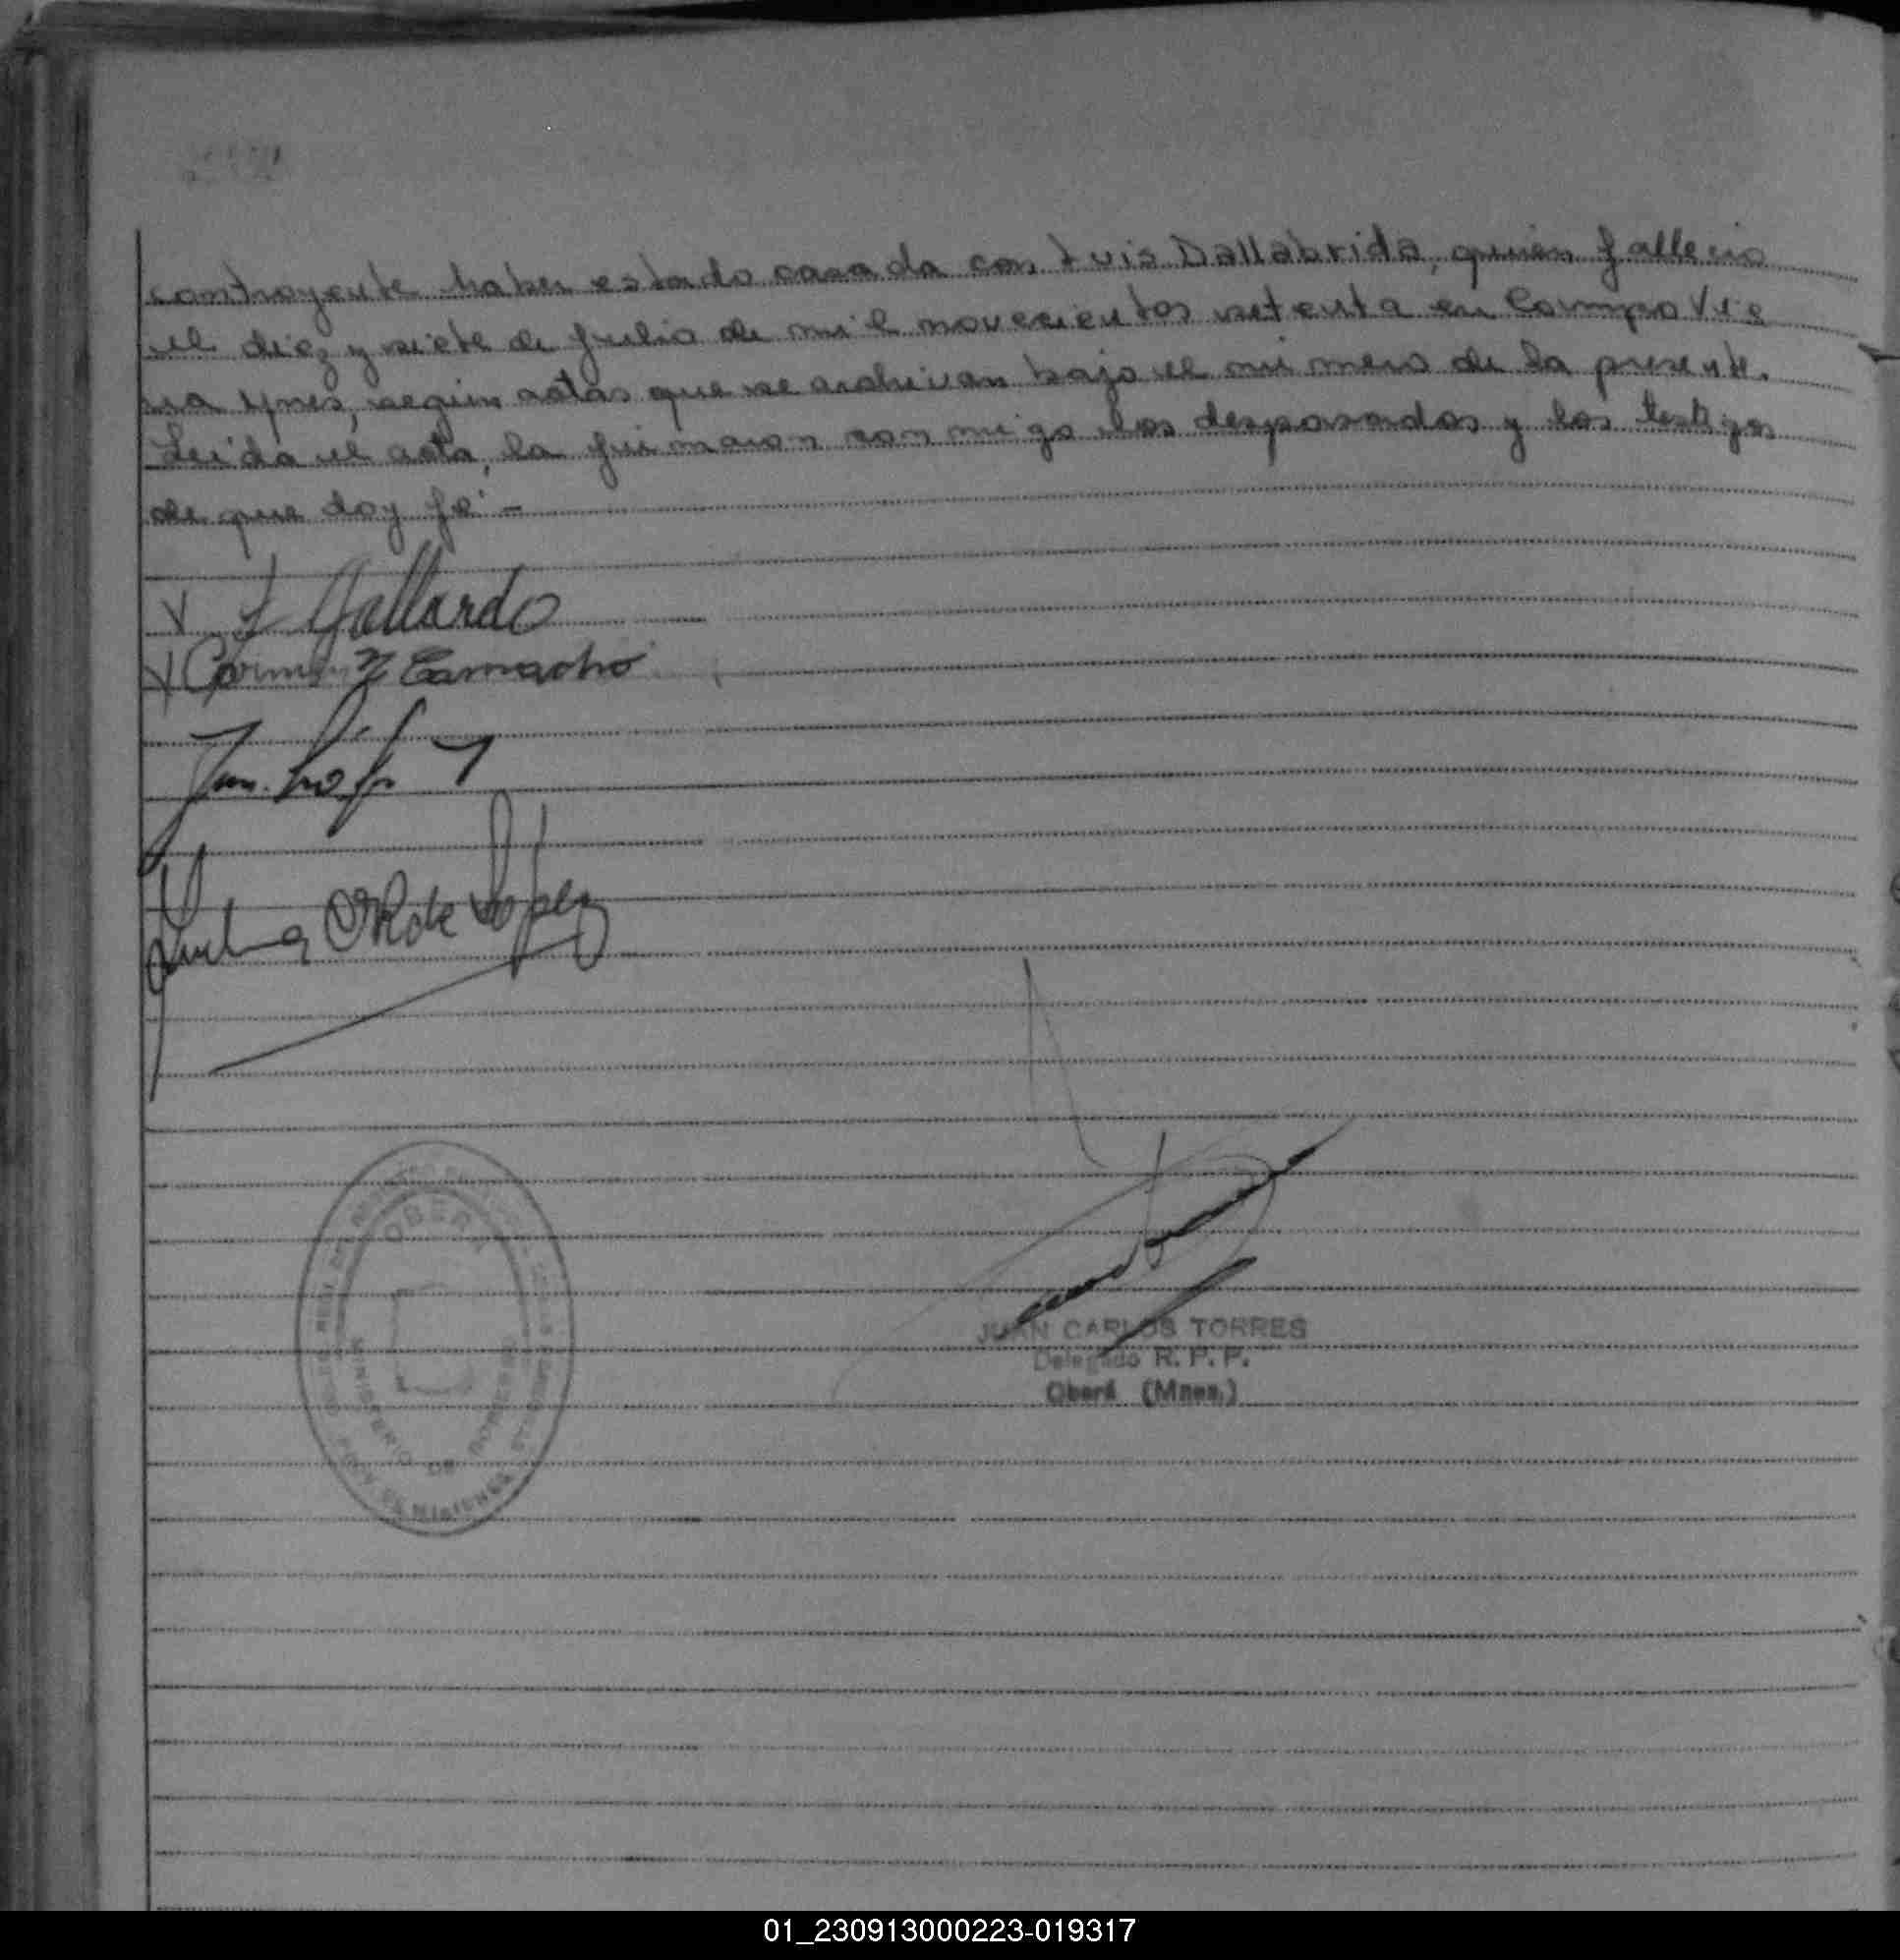 contrayente haber estado casada con Luis Dallabrida, quien fallecio
el diez y siete de julio de mil novecientos setenta en Campo Vie
ra Mnes, según actas que se archivan bajo el número de la presente.
Leida el acta, la firmaron conmigo los desposados y los testigos
de que doy fe. -
Gallardo
Carmen Camacho
de Lopez
OBERA
MINISTERIO DE GOBIERNO
MISIONES
JUAN CARLOS TORRES
Delegado R. P. P.
Oberá (Mnes.)
01_230913000223-019317